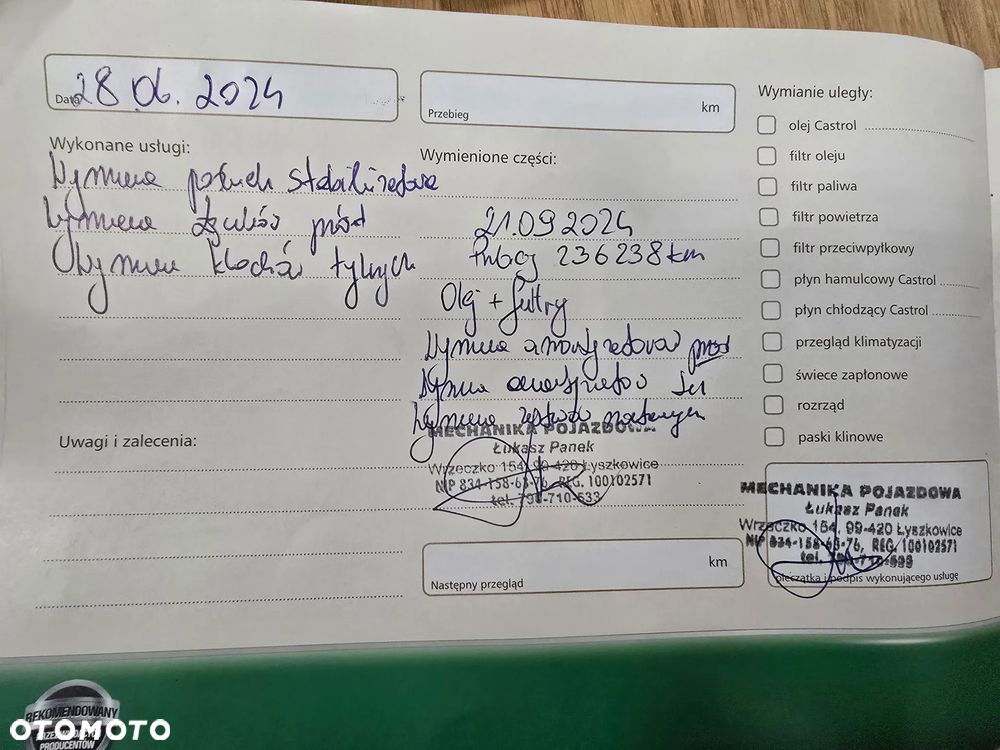 28 06. 2024
Data
Przebieg
km
Wykonane usługi:
Wymiana stabilizatora
Wymiana przód
Wymiana klocków tylnych
Wymienione części:
21.09 2024
236238 km
Olej + filtry
Wymiana amortyzatorów przód
Wymiana
Wymiana
Wymianie uległy:
olej Castrol
filtr oleju
filtr paliwa
filtr powietrza
filtr przeciwpyłkowy
płyn hamulcowy Castrol
płyn chłodzący Castrol
przegląd klimatyzacji
świece zapłonowe
rozrząd
paski klinowe
Uwagi i zalecenia:
MECHANIKA POJAZDOWA
Łukasz Panek
Wrzeczko 154, 99-420 Łyszkowice
NIP 834-158-63-76, REG. 100102571
tel.
Następny przegląd
km
MECHANIKA POJAZDOWA
Łukasz Panek
Wrzeczko 154, 99-420 Łyszkowice
NIP 834-158-63-76, REG. 100102571
tel.
pieczątka i podpis wykonującego usługę
REKOMENDOWANY
PRODUCENTÓW
OTOMOTO